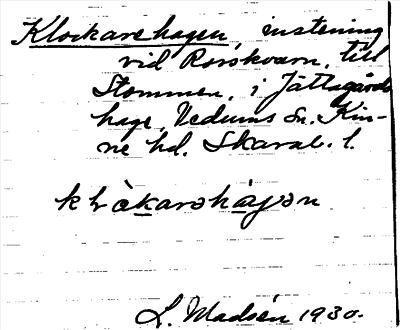 Klockarehagen, instening
vid Rorskvarn, till
Stommen, i Jättagårds
hage, Vedums Sn. Kin-
ne hd. Skarab. l.
L. Madsén 1930.